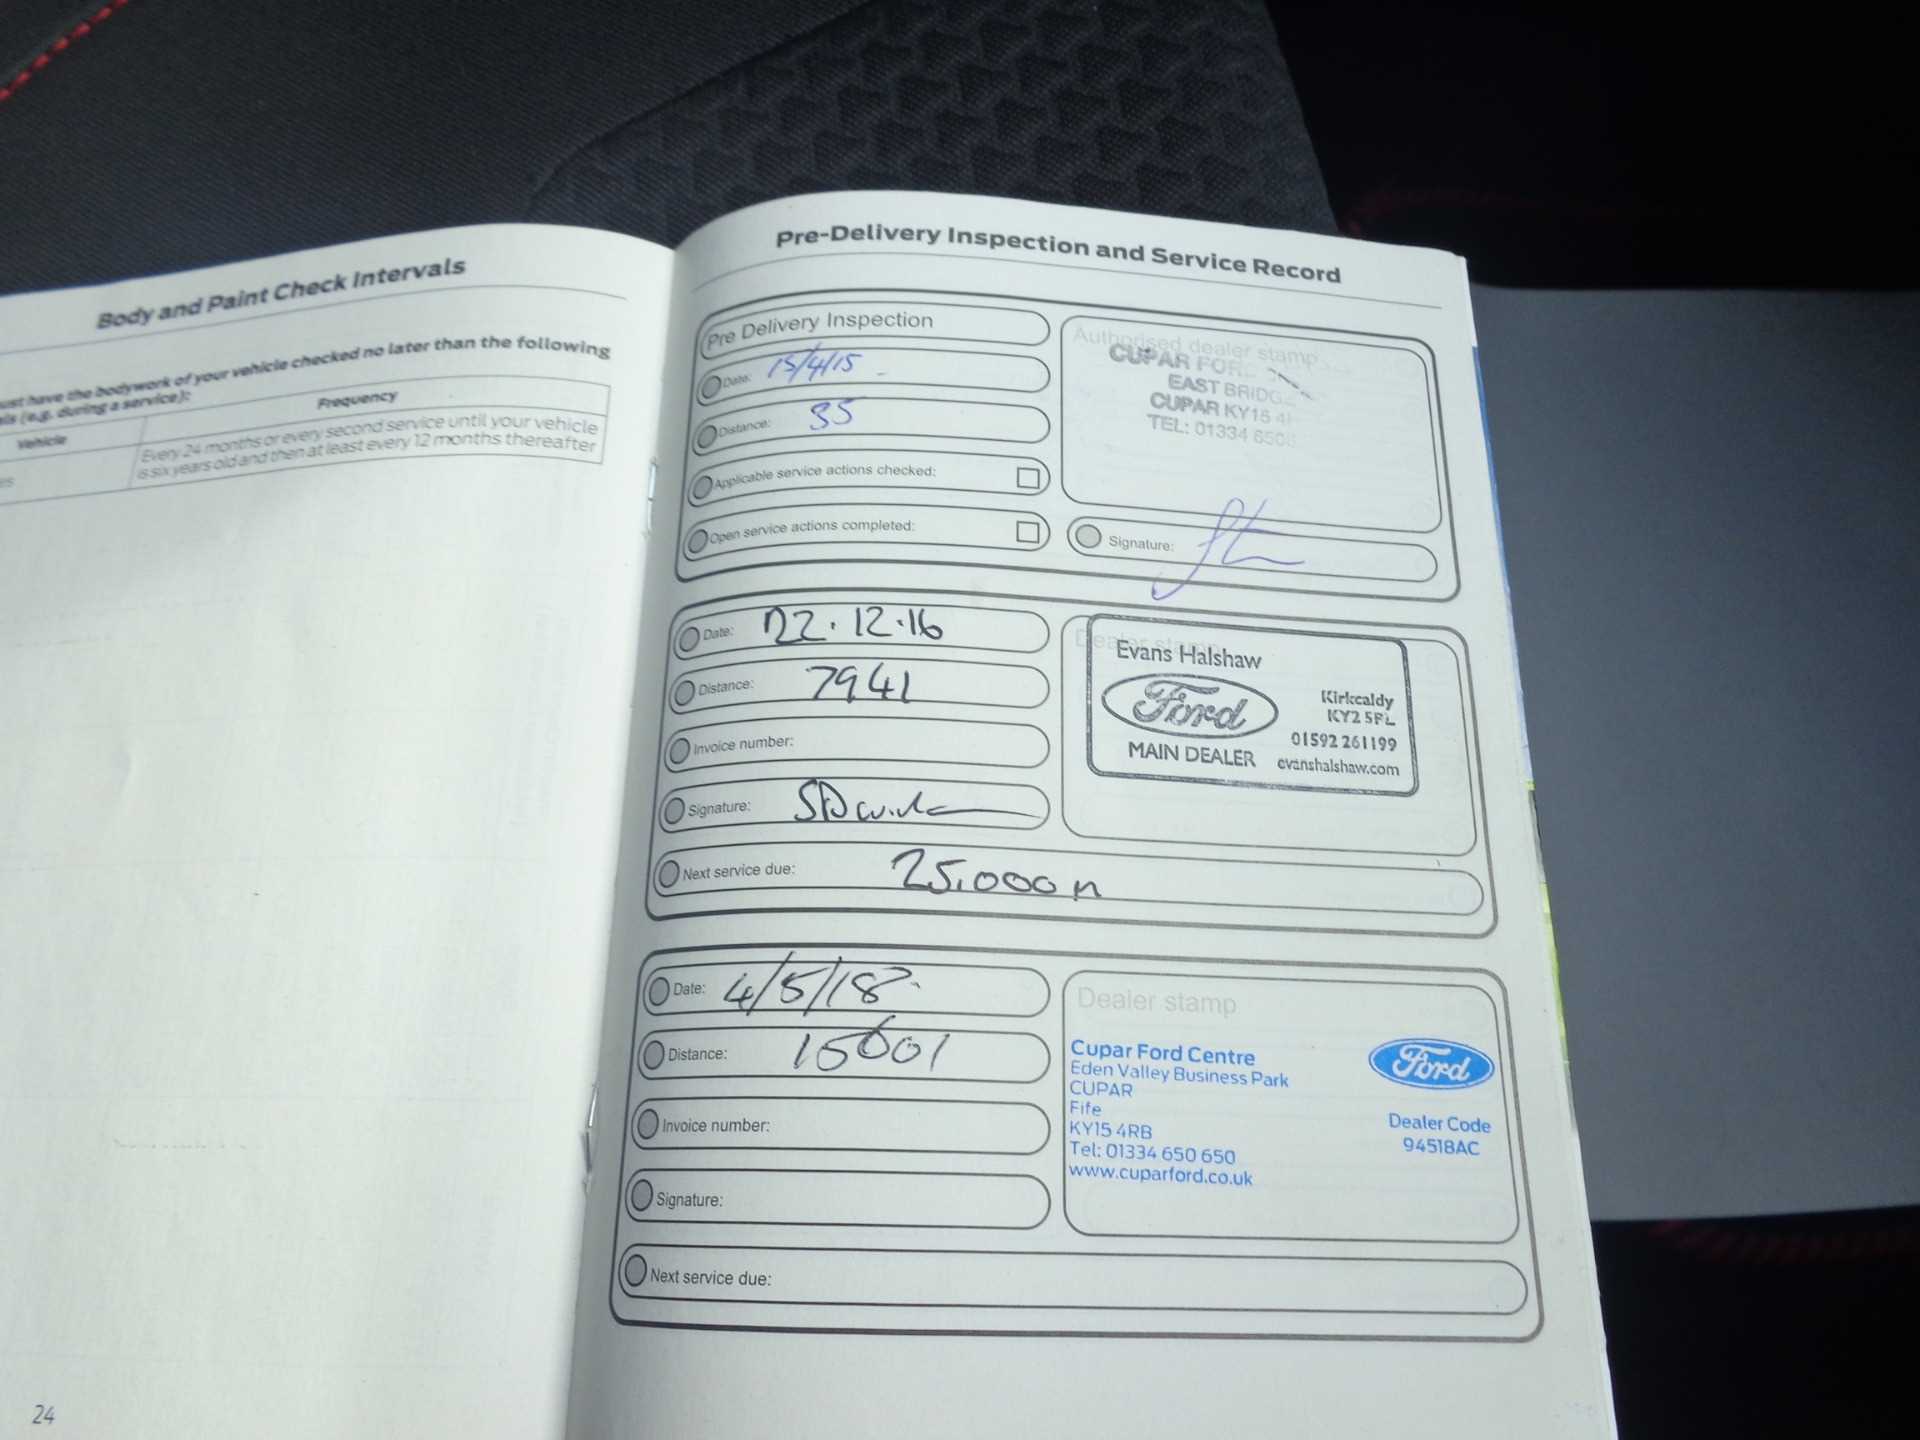 Body and Paint Check Intervals
ust have the bodywork of your vehicle checked no later than the following
ls (e.g. during a service):
Vehicle
Frequency
es
Every 24 months or every second service until your vehicle
is six years old and then at least every 12 months thereafter
24
Pre-Delivery Inspection and Service Record
Pre Delivery Inspection
Date: 15/4/15
Distance: 35
Applicable service actions checked:
Open service actions completed:
Authorised dealer stamp
CUPAR FOR
EAST BRIDG
CUPAR KY15 4
TEL: 01334 650
Signature:
Date: 22.12.16
Distance: 7941
Invoice number:
Signature:
Next service due: 25,000 m
Dealer stamp
Evans Halshaw
Ford
MAIN DEALER
Kirkcaldy
KY2 5FL
01592 261199
evanshalshaw.com
Date: 4/5/18
Distance: 15001
Invoice number:
Signature:
Next service due:
Dealer stamp
Cupar Ford Centre
Eden Valley Business Park
CUPAR
Fife
KY15 4RB
Tel: 01334 650 650
www.cuparford.co.uk
Ford
Dealer Code
94518AC